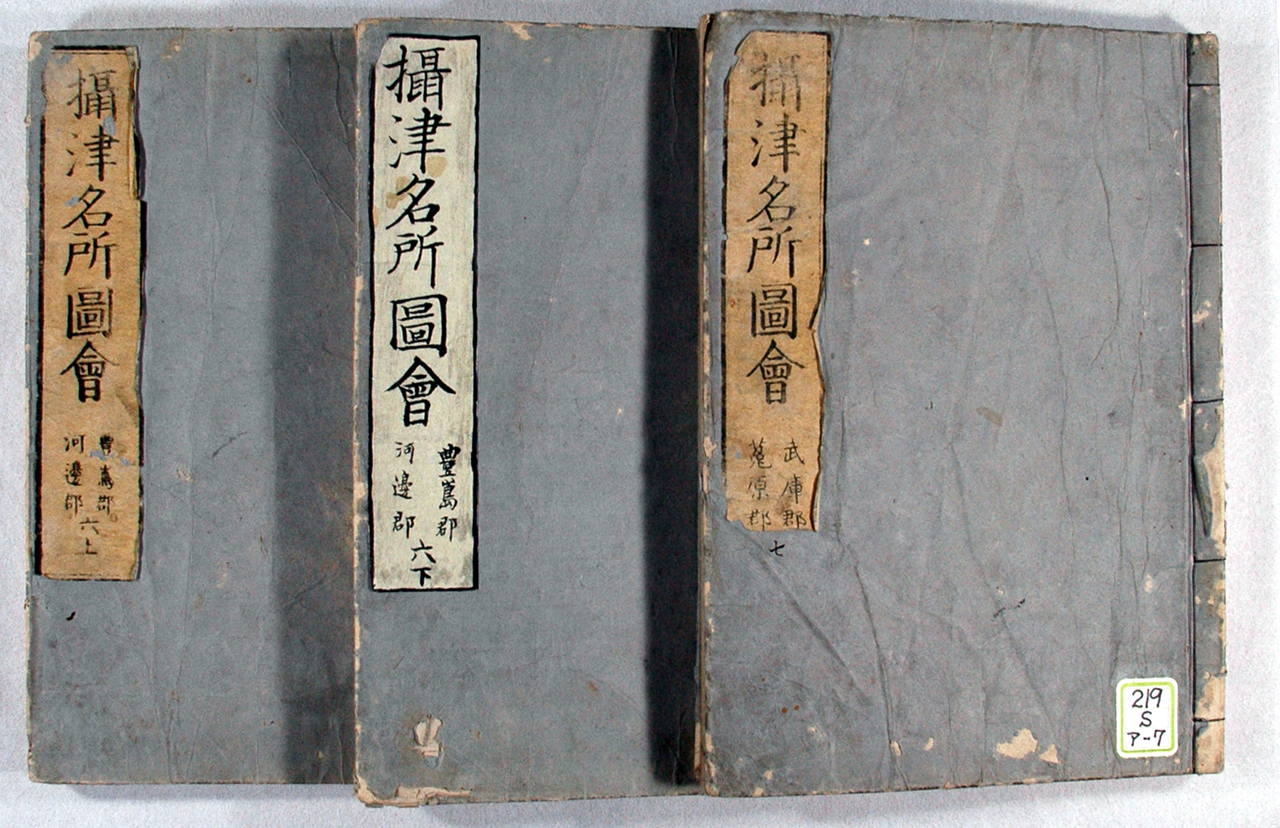 攝津名所圖會
豊嶌郡
河邊郡
六上
攝津名所圖會
豊嶌郡
河邊郡
六下
攝津名所圖會
武庫郡
菟原郡
七
219
S
ア-7